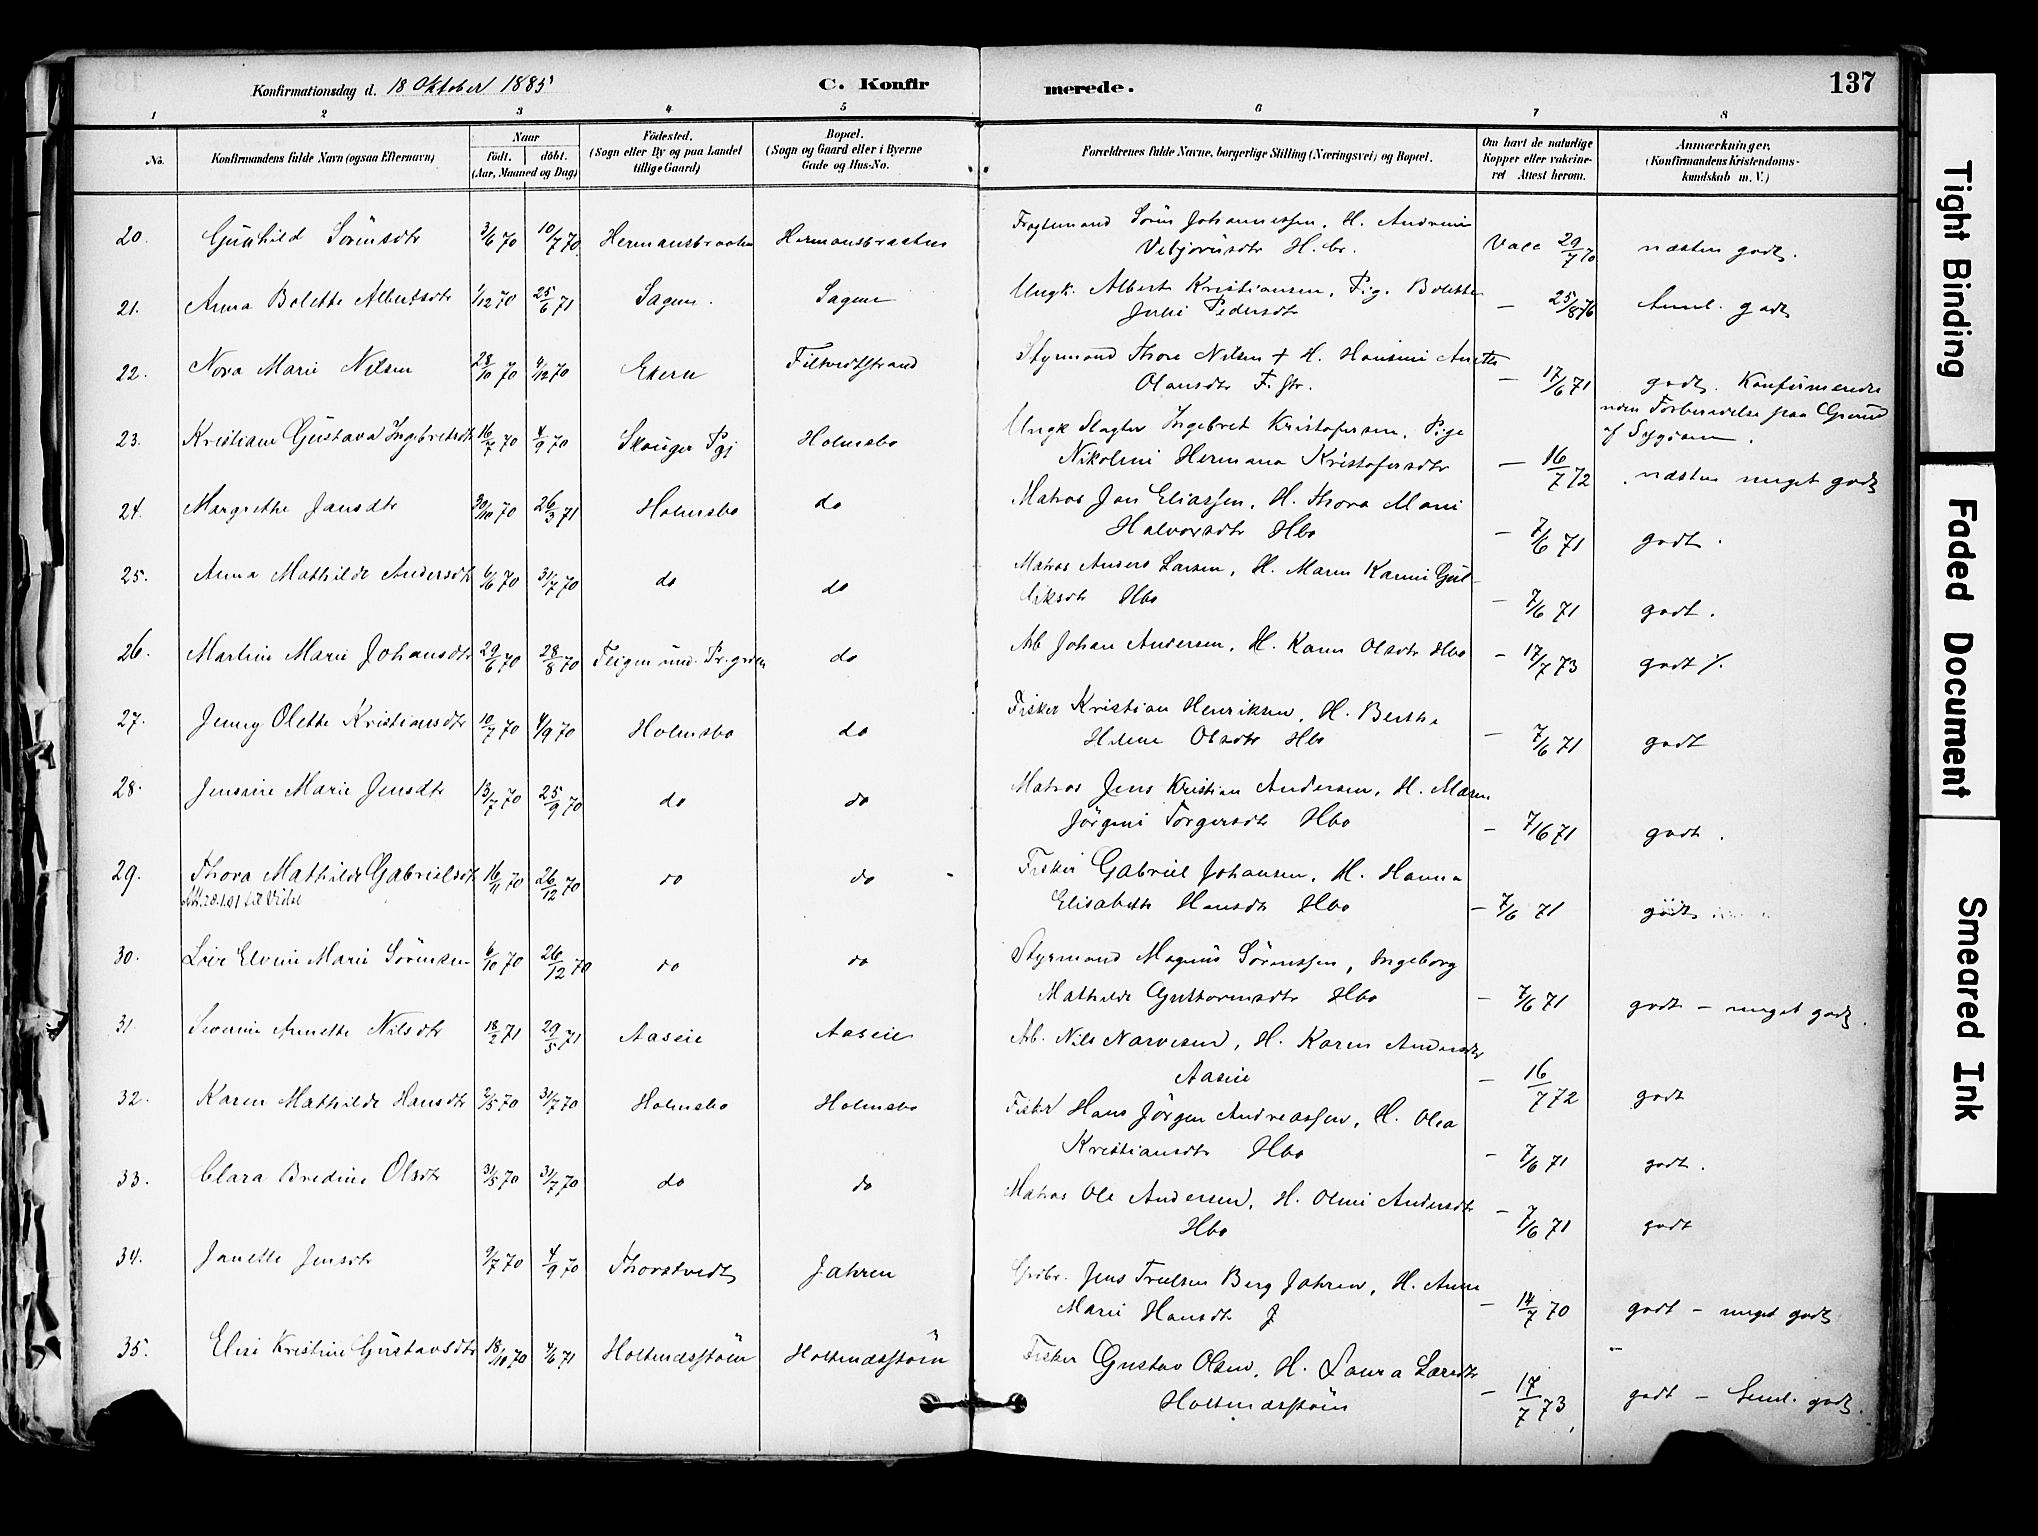 Konfirmationsdag d. 18 Oktober 1885
C. Konfir
merede.
137
1 2 3 4 5 6 7 8
No.
Konfirmandens fulde Navn (ogsaa Efternavn)
Naar
födt. döbt.
(Aar, Maaned og Dag)
Födested.
(Sogn eller By og paa Landet
tillige Gaard)
Bopæl.
(Sogn og Gaard eller i Byerne
Gade og Hus-No.
Forældrenes fulde Navne, borgerlige Stilling (Næringsvei) og Bopæl.
Om havt de naturlige
Kopper eller vakcine-
ret Attest herom.
Anmærkninger.
(Konfirmandens Kristendoms-
kundskab m. V.)
20. Gunhild Sörensdtr 3/6 70 10/7 70. Hermansbraaten Hermansbraaten Fragtemand Sören Johannessen, H. Andrine
Vebjörnsdtr H.br. Vacc 29/7 70 næsten godt.
21. Anna Bolette Albertsdtr 1/12 70 25/6 71 Sagene. Sagene Ungk. Albert Kristiansen, Pig. Bolette
Julie Pedersdtr — 25/8 76 Teml. godt
22. Nora Marie Nilsen 28/10 70 4/12 70 Ekern Filtvedtstrand Styrmand Thore Nilsen + H. Hansine Anette
Olausdtr F. str. — 17/6 71 godt. Konfirmeredes
uden Forberedelse paa Grund
af Sygdom.
23. Kristiane Gustava Ingebretsdtr 16/7 70 4/9 70 Skouger Pgj Holmsbo Ungk Slagter Ingebret Kristofersen, Pige
Nikoline Hermana Kristofersdtr — 16/7 72 næsten meget godt
24. Margrethe Jansdtr 30/10 70 26/3 71 Holmsbo do Matros Jan Eliassen, H. Thora Marie
Halvorsdtr Hbo — 7/6 71 godt.
25. Anna Mathilde Andersdtr 6/6 70 31/7 70 do do Matros Anders Larsen, H. Maren Karine Gul-
liksdtr Hbo — 7/6 71 godt.
26. Martine Marie Johansdtr 29/6 70 28/8 70 Teigen und. Pr.grden do Arb Johan Andersen, H. Karen Olsdtr Hbo — 17/7 73 godt %.
27. Jenny Olette Kristiansdtr 10/7 70 4/9 70 Holmsbo do Fisker Kristian Henriksen, H. Berthe
Helene Olsdtr Hbo — 7/6 71 godt
28. Jensine Marie Jensdtr 13/7 70 25/9 70 do do Matros Jens Kristian Andersen, H. Maren
Jörgine Torgersdtr Hbo — 7/6 71 godt.
29. Thora Mathilde Gabrielsdtr 16/11 70 26/12 70 do do Fisker Gabriel Johansen, H. Hanna
Elisabeth Hansdtr Hbo — 7/6 71 godt
30. Elvine Marie Sörensen 6/10 70 26/12 70 do do Styrmand Magnus Sörenssen, Ingeborg
Mathilde Guttormsdtr Hbo — 7/6 71 godt – meget godt.
31. Severine Annette Nilsdtr 18/2 71 29/5 71 Aaseie Aaseie Arb. Nils Narvesen, H. Karen Andersdtr
Aaseie — 16/7 72 godt
32. Karen Mathilde Hansdtr 2/5 70 31/7 70 Holmsbo Holmsbo Fisker Hans Jörgen Andreassen, H. Olea
Kristiansdtr Hbo — 7/6 71 godt.
33. Clara Bredine Olsdtr 31/5 70 31/7 70 do do Matros Ole Andersen, H. Oline Andersdtr
Hbo — 7/6 71 godt
34. Janette Jensdtr 9/7 70 4/9 70 Thorstvedt Jahren Grdbr. Jens Truelsen Berg Jahren, H. Anne
Marie Hansdtr J — 14/7 70 godt – meget godt
35. Elise Kristine Gustavsdtr 18/10 70 4/6 71 Holtnæsstöen Holtnæsstöen Fisker Gustav Olsen, H. Laura Larsdtr
Holtnæsstöen — 17/7 73 godt – Teml. godt.
Tight Binding
Faded Document
Smeared Ink